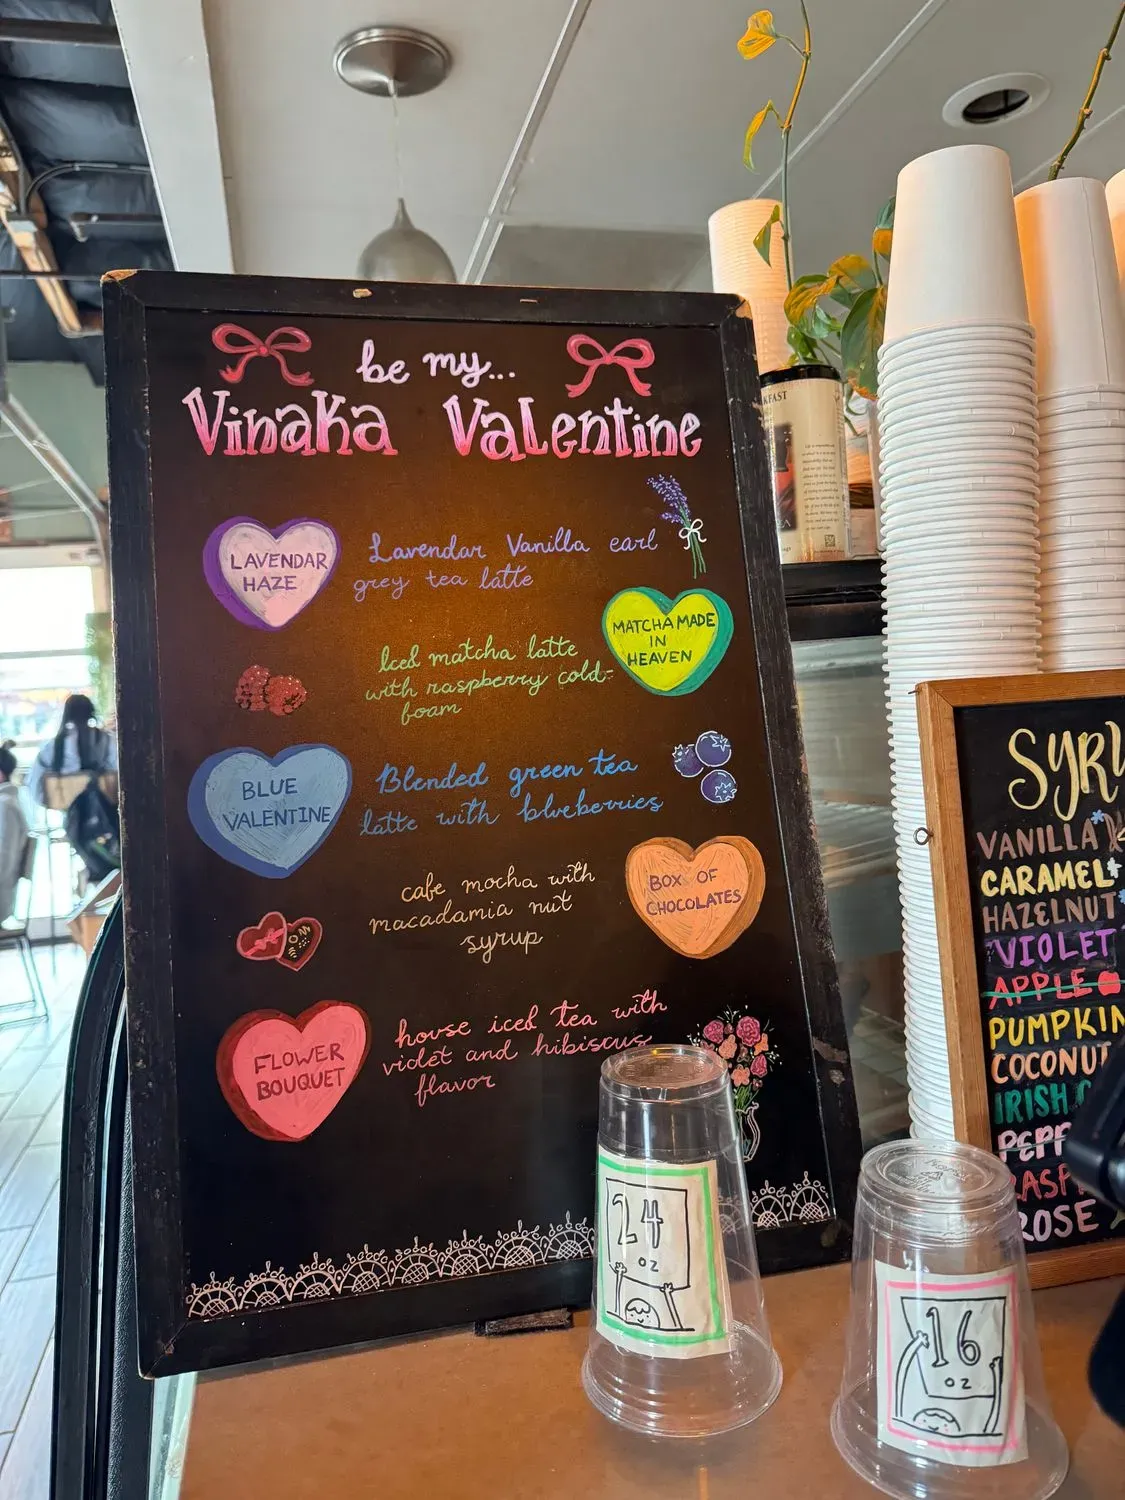 be my...
Vinaka Valentine
LAVENDAR
HAZE
Lavendar Vanilla earl
grey tea latte
MATCHA MADE
IN
HEAVEN
Iced matcha latte
with raspberry cold-
foam
BLUE
VALENTINE
Blended green tea
latte with blueberries
BOX OF
CHOCOLATES
cafe mocha with
macadamia nut
syrup
FLOWER
BOUQUET
house iced tea with
violet and hibiscus
flavor
24
oz
16
oz
SYRU
VANILLA
CARAMEL
HAZELNUT
VIOLET
APPLE
PUMPKIN
COCONUT
IRISH C
PEPP
RASP
ROSE